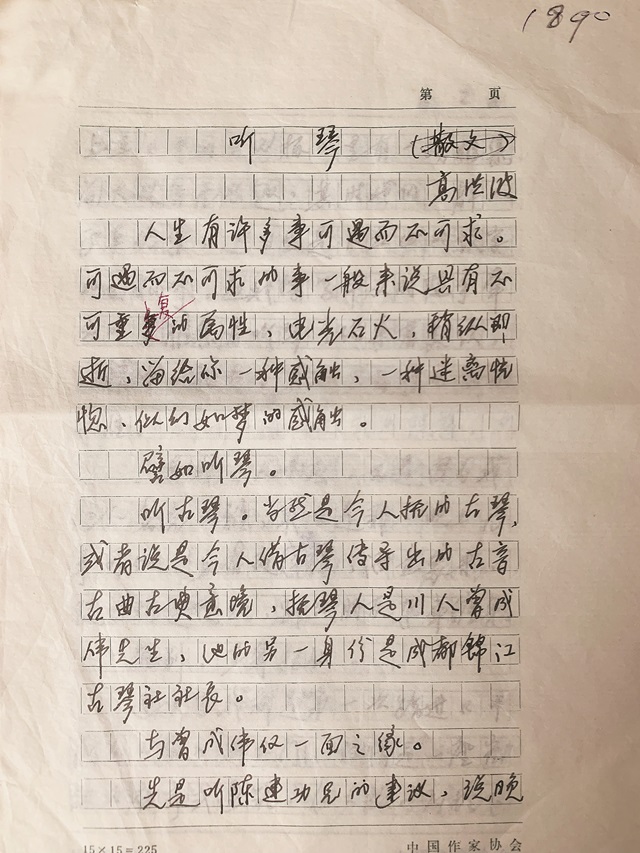 1890
第 页
听琴 (散文)
高洪波
人生有许多事可遇而不可求。
可遇而不可求的事一般来说具有不
可重复的属性，电光石火，稍纵即
逝，留给你一种感触，一种迷离恍
惚、似幻如梦的感触。
譬如听琴。
听古琴。当然是今人抚的古琴，
或者说是今人借古琴传导出的古音
古曲古典意境，抚琴人是川人曾成
伟先生，他的另一身份是成都锦江
古琴社社长。
与曾成伟仅一面之缘。
先是听陈建功兄的建议，说晚
15×15=225 中国作家协会